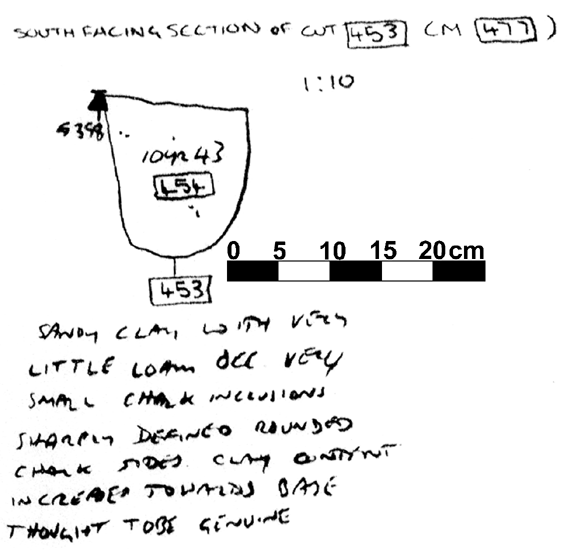 SOUTH FACING SECTION OF CUT 453 (M 477)
1:10
5398
10yr 43
454
0 5 10 15 20cm
453
SANDY CLAY WITH VERY
LITTLE LOAM OCC VERY
SMALL CHALK INCLUSIONS
SHARPLY DEFINED ROUNDED
CHALK SIDES. CLAY CONTENT
INCREASES TOWARDS BASE
THOUGHT TO BE GENUINE